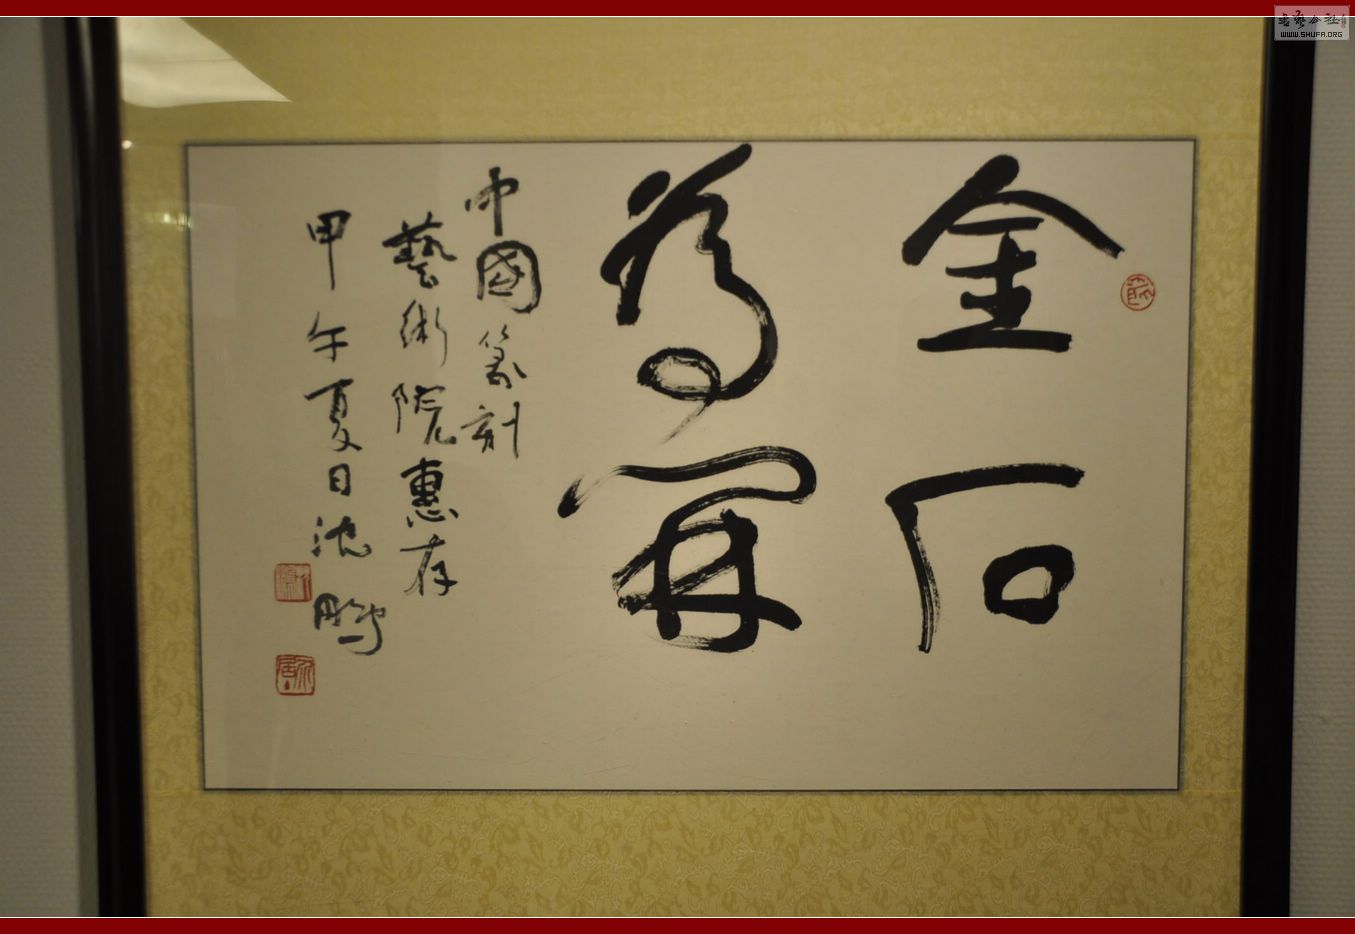 金石
為開
中國篆刻
藝術院惠存
甲午夏日沈鵬
書藝公社
WWW.SHUFA.ORG